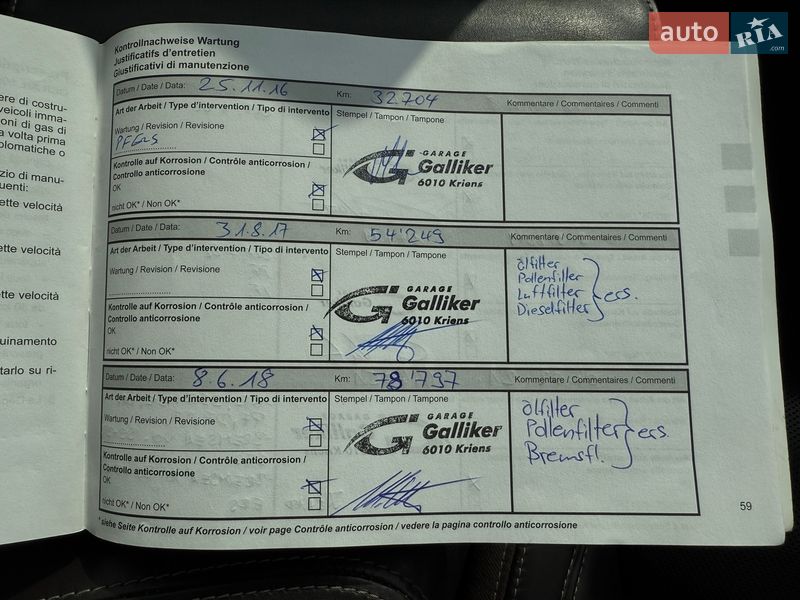 auto RIA .com
Kontrollnachweise Wartung
Justificatifs d'entretien
Giustificativi di manutenzione
Datum / Date / Data: 25.11.16 Km: 32.704 Kommentare / Commentaires / Commenti
Art der Arbeit / Type d'intervention / Tipo di intervento Stempel / Tampon / Tampone
Wartung / Revision / Revisione
Kontrolle auf Korrosion / Contrôle anticorrosion /
Controllo anticorrosione
OK
nicht OK* / Non OK*
GARAGE
Galliker
6010 Kriens
Datum / Date / Data: 31.8.17 Km: 54'249 Kommentare / Commentaires / Commenti
Art der Arbeit / Type d'intervention / Tipo di intervento Stempel / Tampon / Tampone
Wartung / Revision / Revisione
Kontrolle auf Korrosion / Contrôle anticorrosion /
Controllo anticorrosione
OK
nicht OK* / Non OK*
GARAGE
Galliker
6010 Kriens
ölfilter
Pollenfilter
Luftfilter ers.
Dieselfilter
Datum / Date / Data: 8.6.18 Km: 78'797 Kommentare / Commentaires / Commenti
Art der Arbeit / Type d'intervention / Tipo di intervento Stempel / Tampon / Tampone
Wartung / Revision / Revisione
Kontrolle auf Korrosion / Contrôle anticorrosion /
Controllo anticorrosione
OK
nicht OK* / Non OK*
GARAGE
Galliker
6010 Kriens
ölfilter
Pollenfilter ers.
Bremsfl.
* siehe Seite Kontrolle auf Korrosion / voir page Contrôle anticorrosion / vedere la pagina controllo anticorrosione
59
ere di costru-
veicoli imma-
oni di gas di
a volta prima
plomatiche o
zio di manu-
uenti:
ette velocità
ette velocità
ette velocità
uinamento
tarlo su ri-